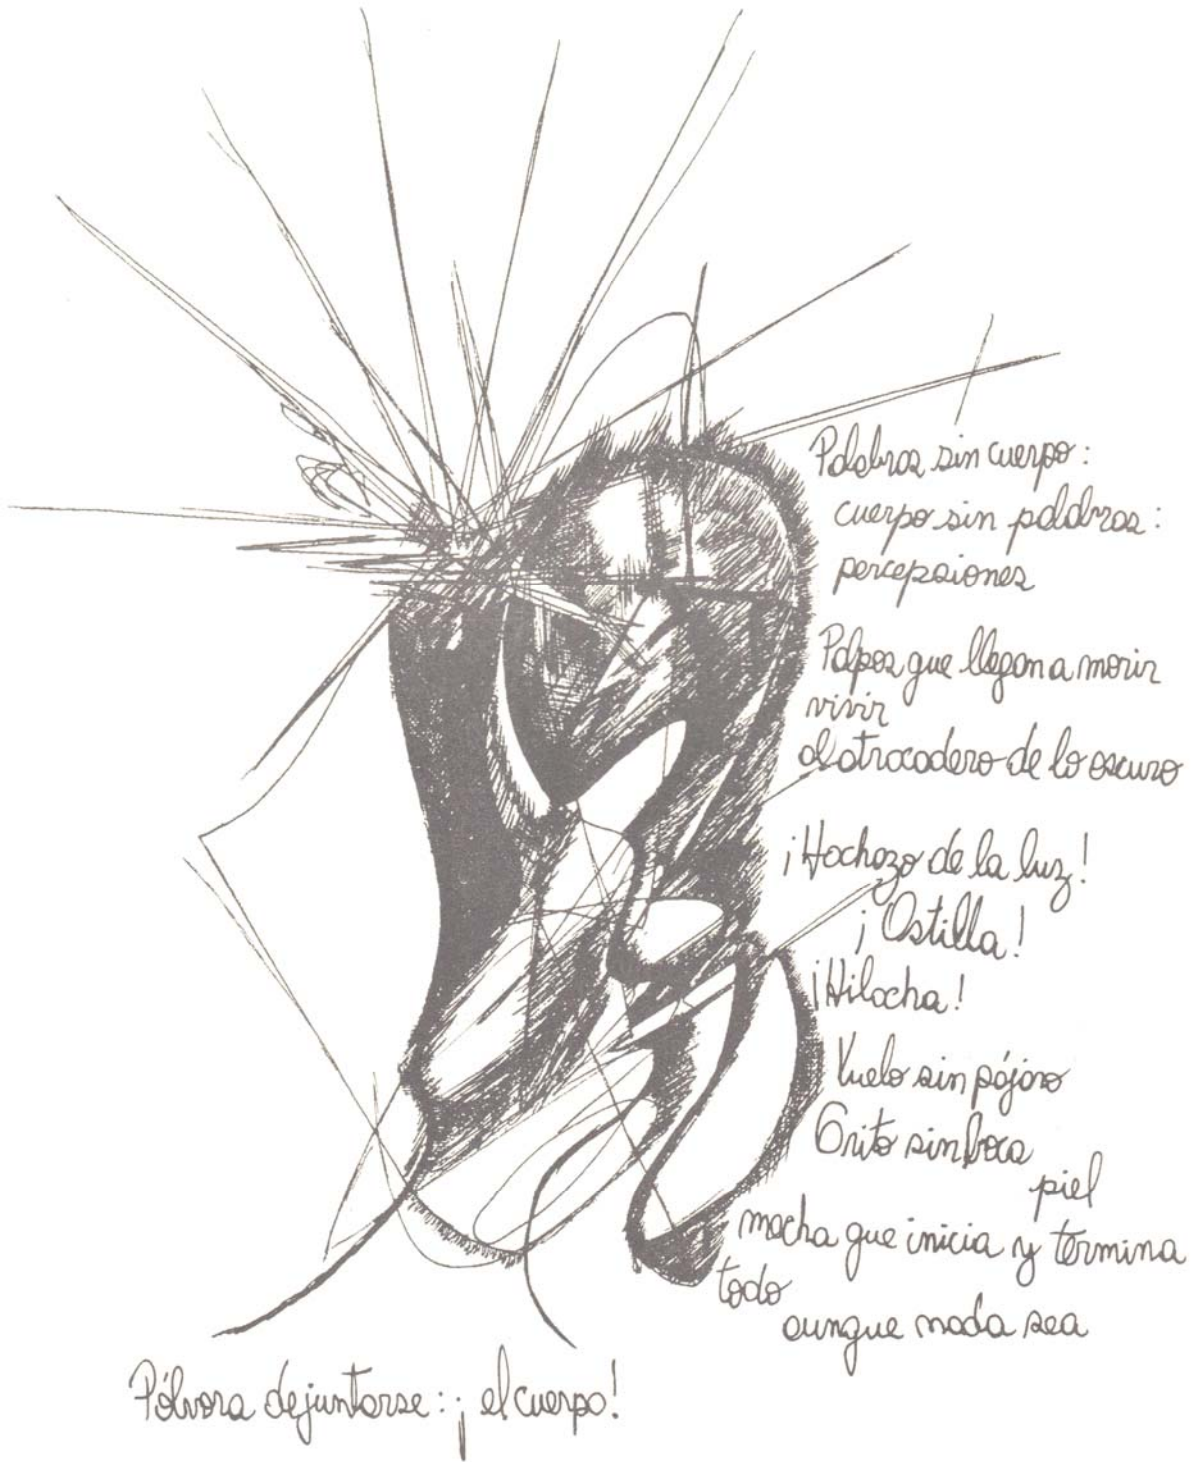 Palabras sin cuerpo:
cuerpo sin palabras:
percepsiones
Palpos que llegan a morir
vivir
al atracadero de lo oscuro
¡Hachazo de la luz!
¡Astilla!
¡Hilacha!
Vuelo sin pájaro
Grito sin boca
piel
mocha que inicia y termina
todo
aunque nada sea
Pólvora de juntarse: ¡el cuerpo!